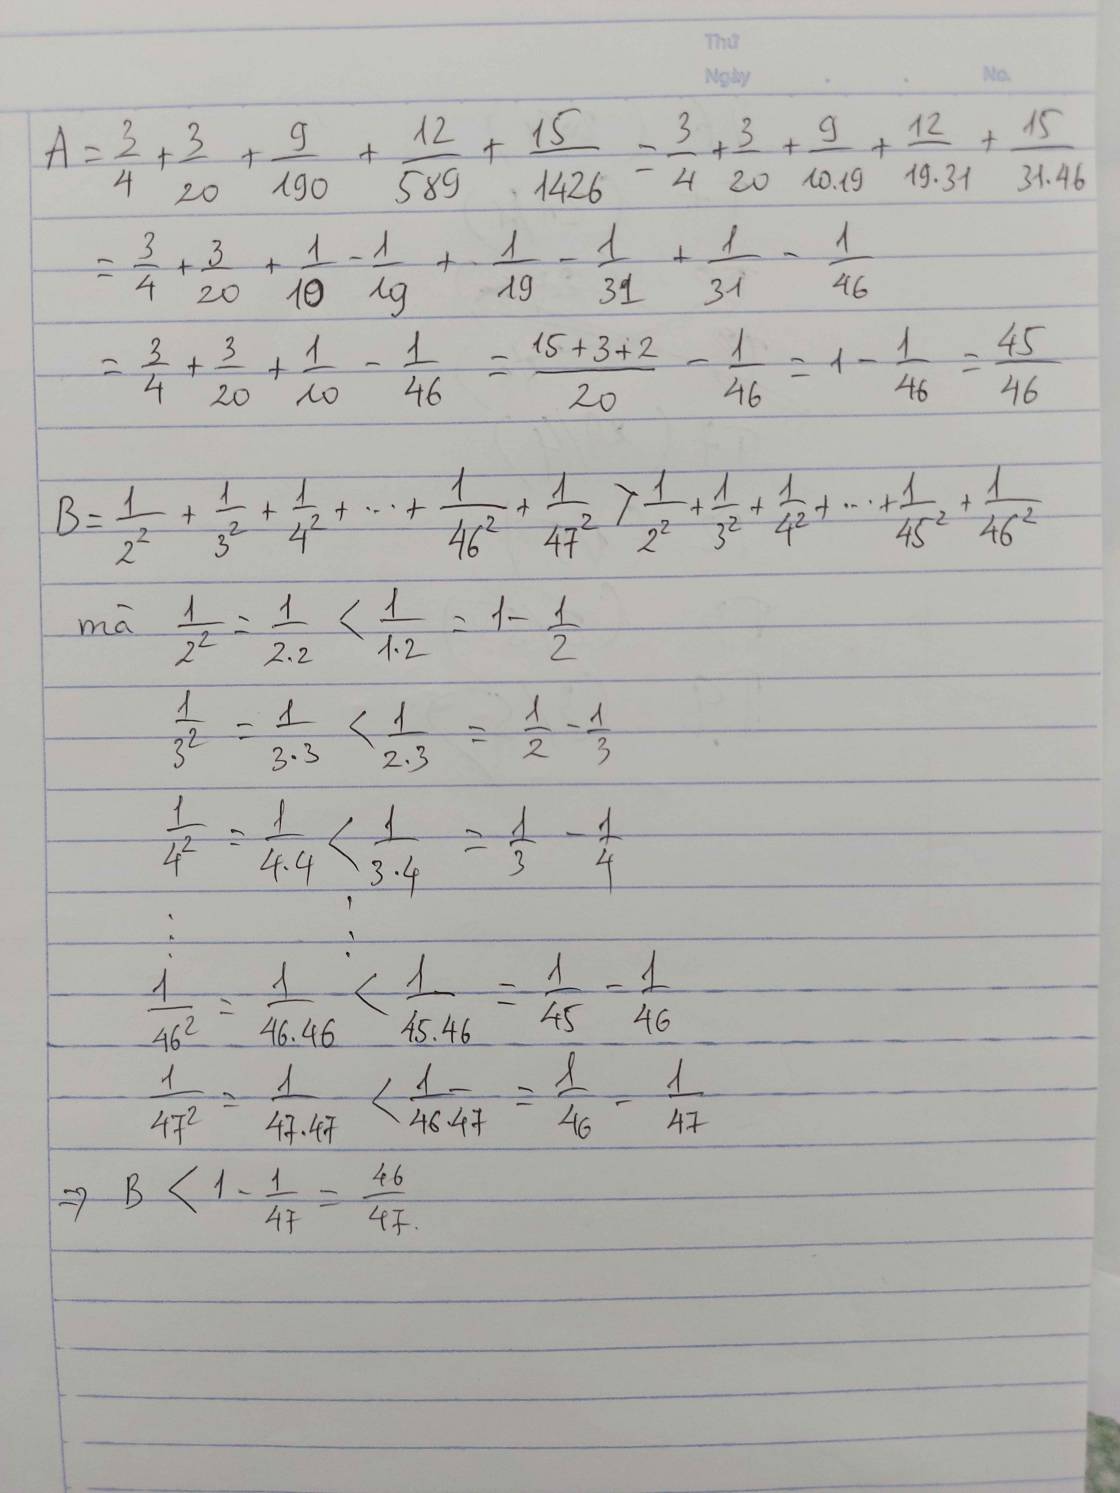 Thứ
Ngày . . No.
A = 3/4 + 3/20 + 9/190 + 12/589 + 15/1426 = 3/4 + 3/20 + 9/10.19 + 12/19.31 + 15/31.46
= 3/4 + 3/20 + 1/10 - 1/19 + 1/19 - 1/31 + 1/31 - 1/46
= 3/4 + 3/20 + 1/10 - 1/46 = (15+3+2)/20 - 1/46 = 1 - 1/46 = 45/46
B = 1/2² + 1/3² + 1/4² + ... + 1/46² + 1/47² > 1/2² + 1/3² + 1/4² + ... + 1/45² + 1/46²
mà 1/2² = 1/2.2 < 1/1.2 = 1 - 1/2
1/3² = 1/3.3 < 1/2.3 = 1/2 - 1/3
1/4² = 1/4.4 < 1/3.4 = 1/3 - 1/4
⋮ ⋮
1/46² = 1/46.46 < 1/45.46 = 1/45 - 1/46
1/47² = 1/47.47 < 1/46.47 = 1/46 - 1/47
⇒ B < 1 - 1/47 = 46/47.